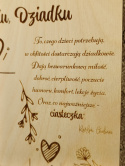 u, Dziadku
i
To, czego dzieci potrzebują
w obfitości dostarczają dziadkowie.
Dają bezwarunkową miłość,
dobroć, cierpliwość, poczucie
humoru, komfort, lekcje życia.
Oraz, co najważniejsze -
ciasteczka."